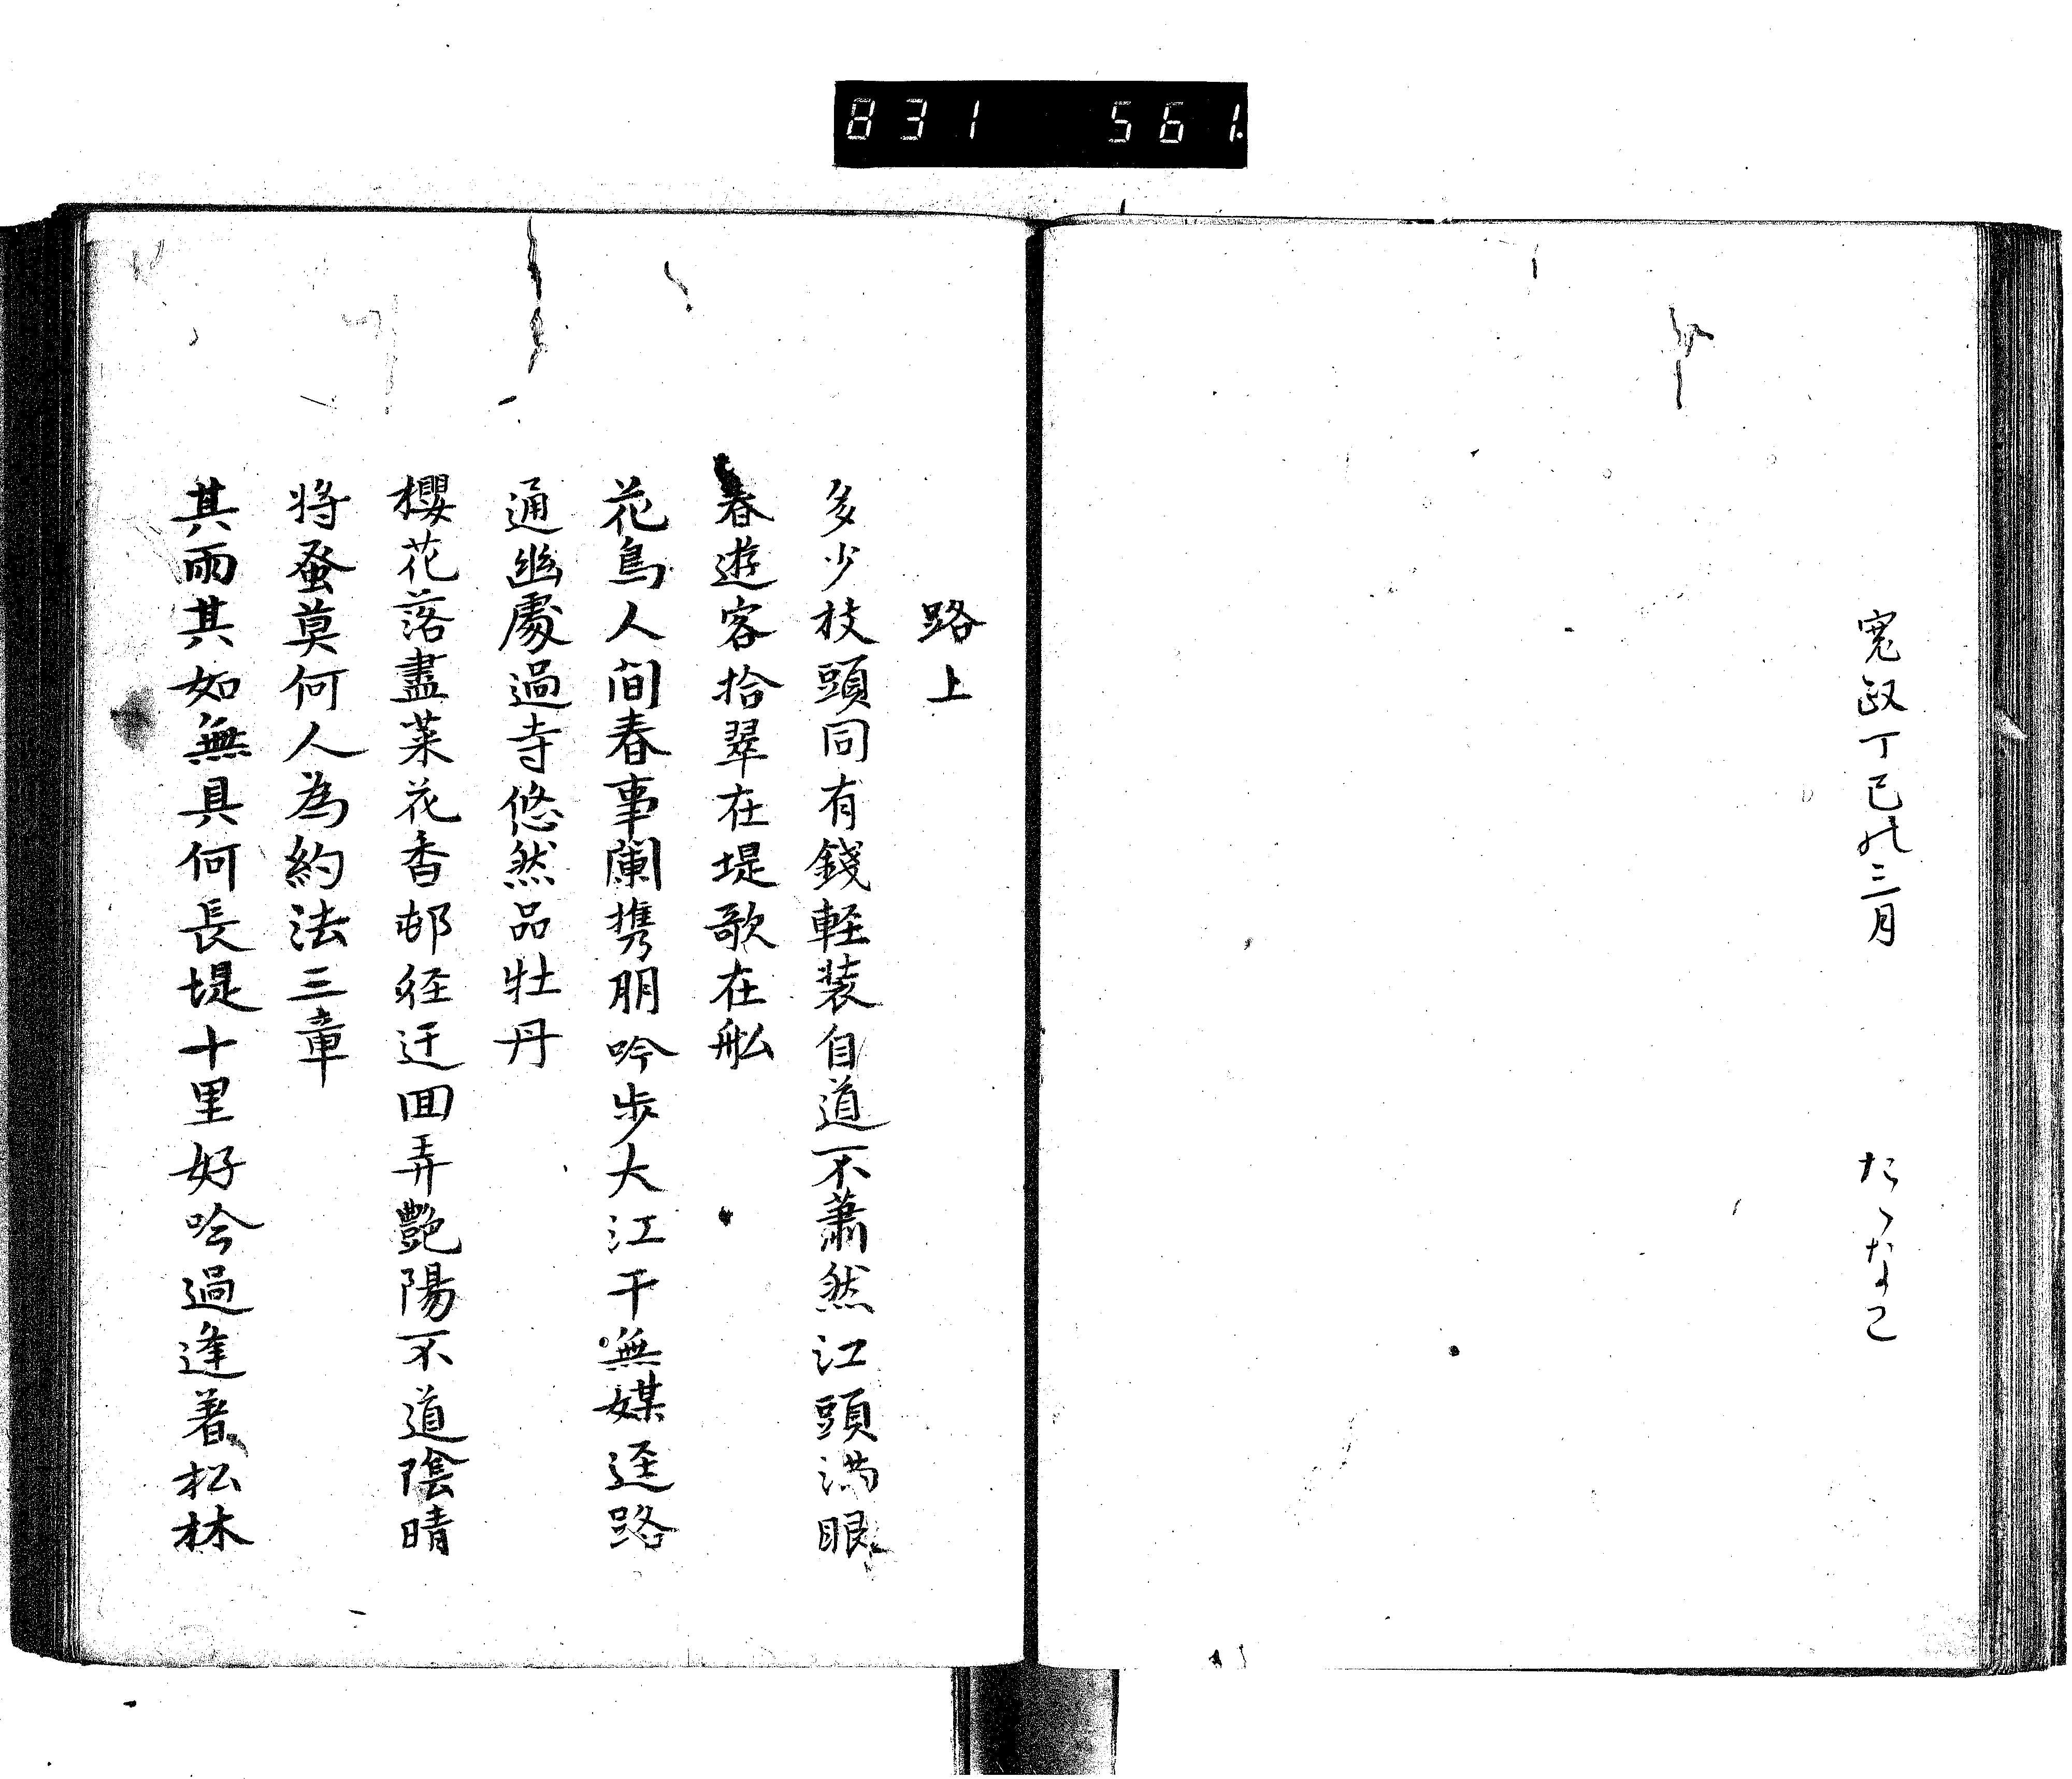 831 561.
寛政丁巳の三月 たゝなこ
路上
多少枝頭同有錢軽装自道不蕭然江頭満眼
春遊客拾翠在堤歌在舩
花鳥人间春事闌携朋吟歩大江干無媒逕路
通幽處過寺悠然品牡丹
櫻花落盡菜花香邨径迂囬弄艶陽不道陰晴
将蚕莫何人為約法三章
其雨其如無具何長堤十里好吟過逢著松林